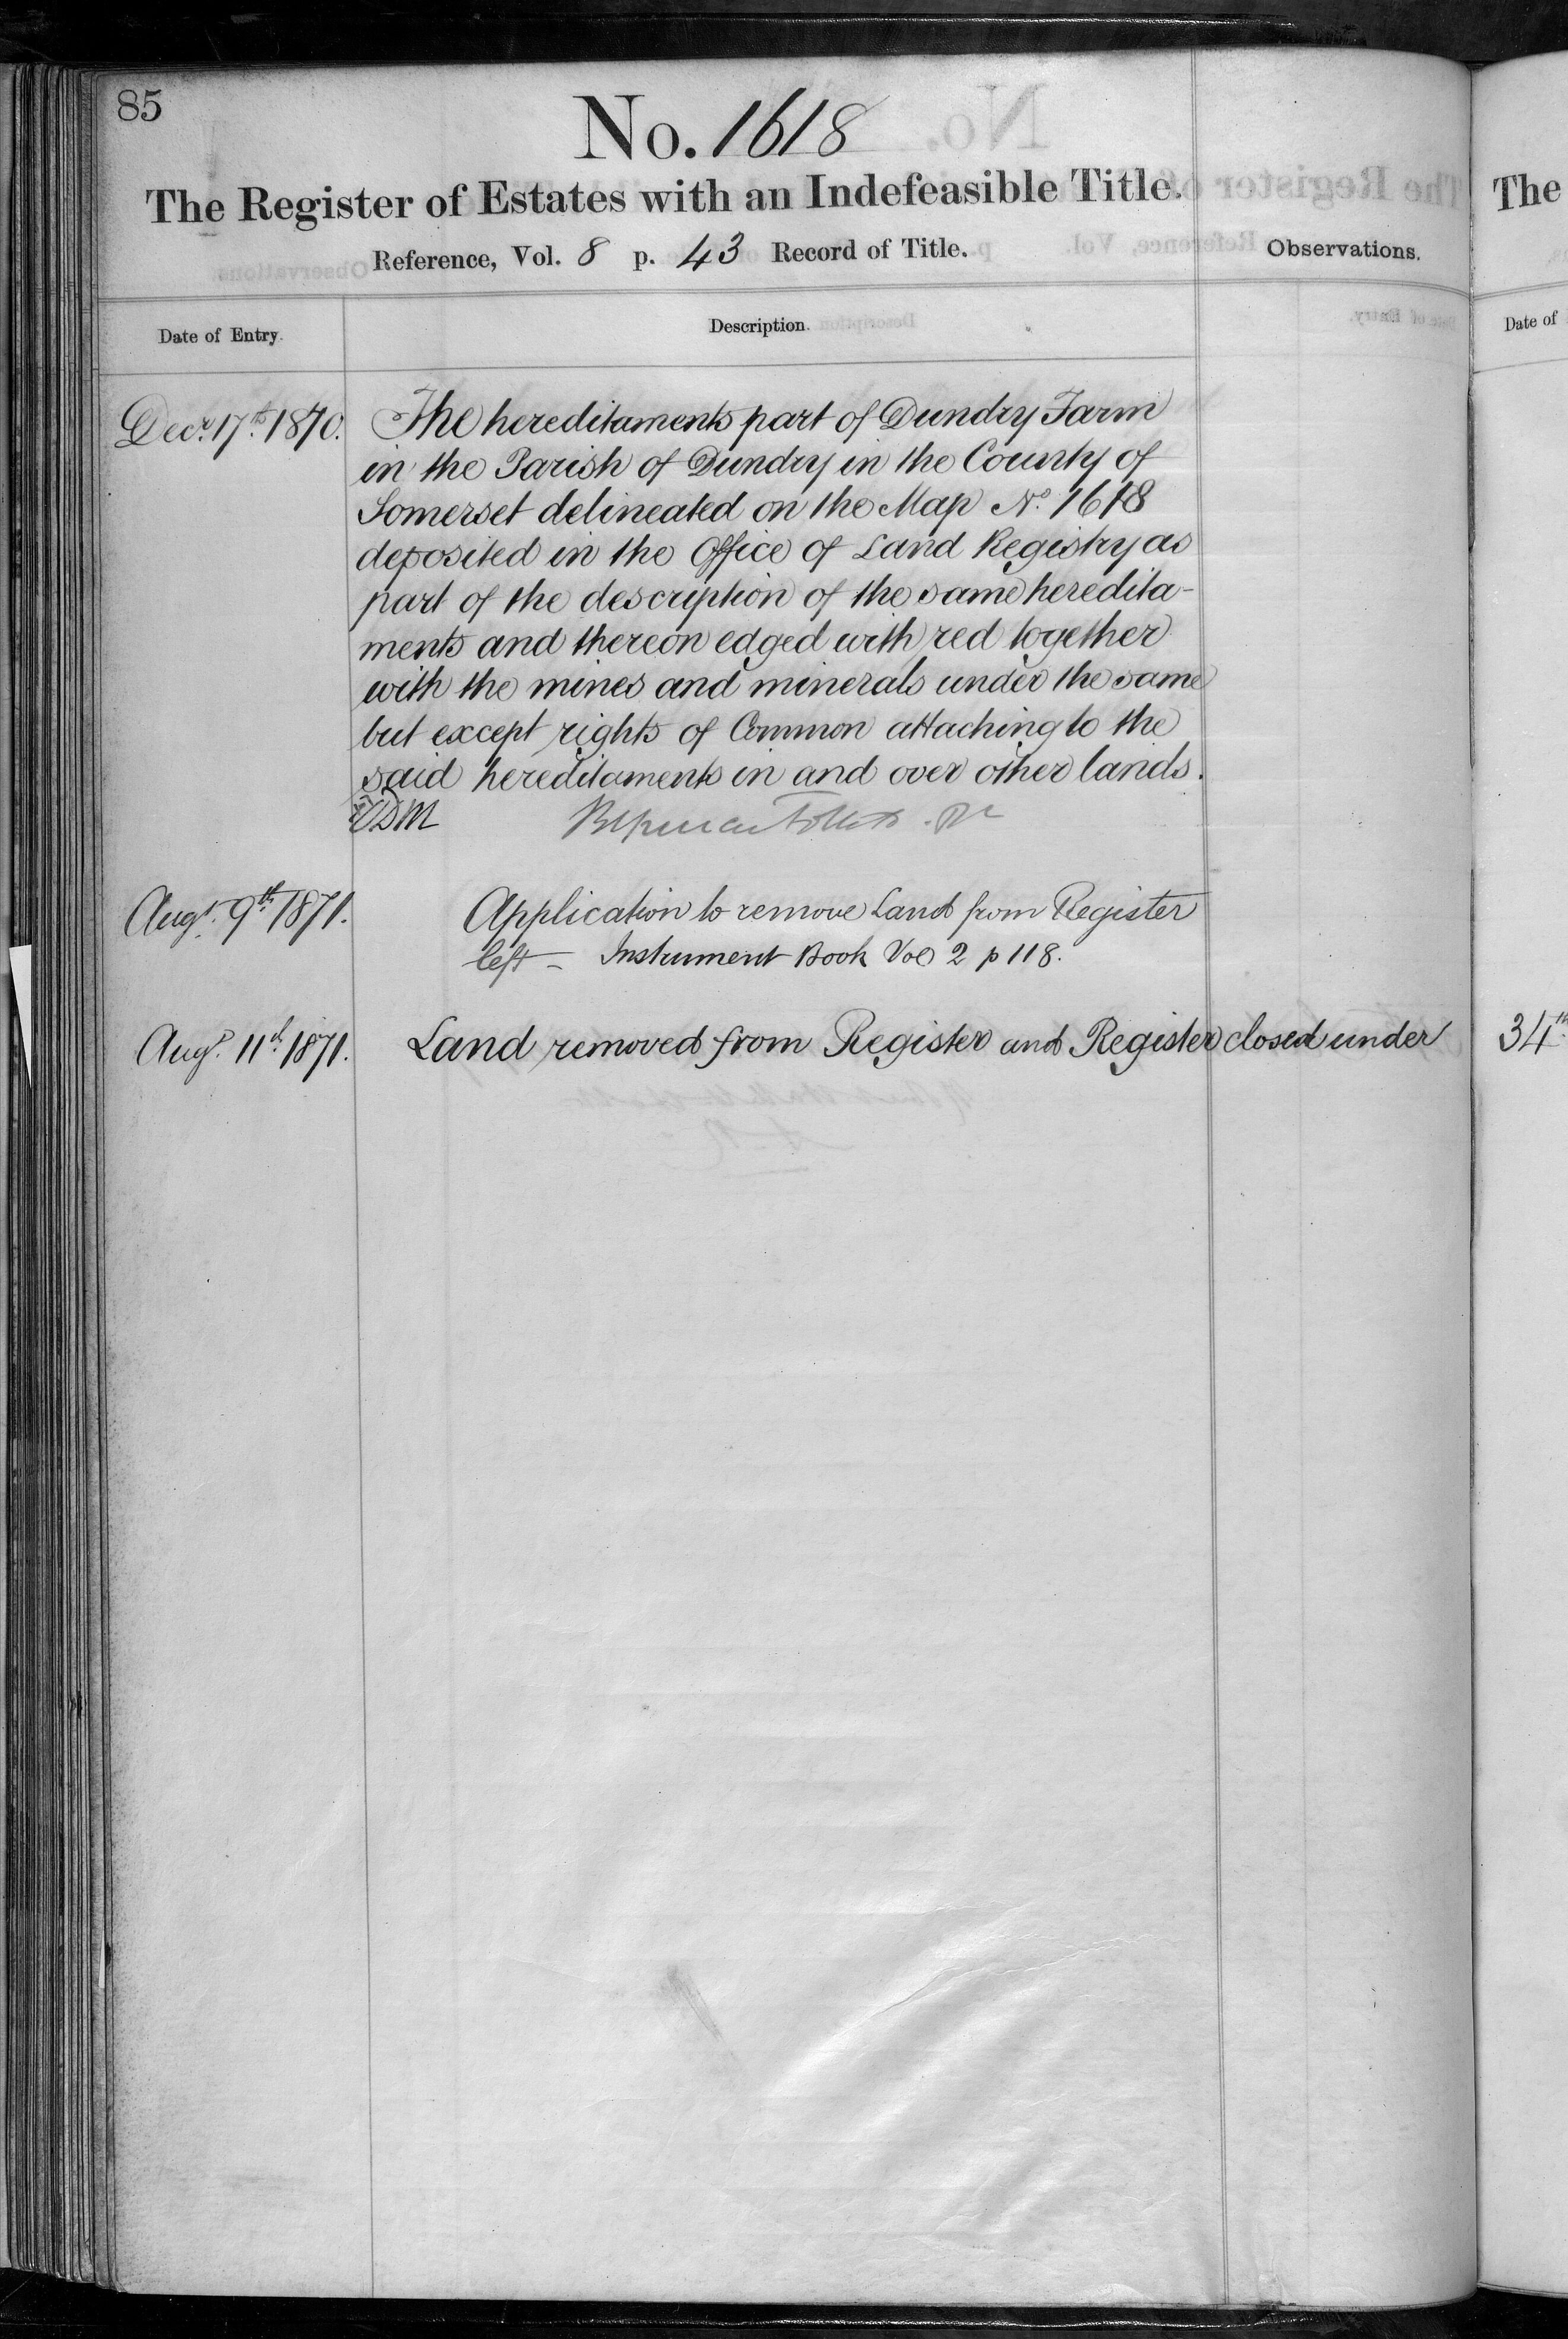 85
No. 1618
The Register of Estates with an Indefeasible Title.
Reference, Vol. 8 p. 43 Record of Title.
Observations.
Date of Entry.
Description.
Decr. 17th 1870.
The hereditaments part of Dundry Farm
in the Parish of Dundry in the County of
Somerset delineated on the Map No. 1618
deposited in the Office of Land Registry as
part of the description of the same heredita-
ments and thereon edged with red together
with the mines and minerals under the same
but except rights of Common attaching to the
said hereditaments in and over other lands.
Augt. 9th 1871.
Application to remove Land from Register
left – Instrument Book Vol 2 p 118.
Augt. 11th 1871.
Land removed from Register and Register closed under
The
Date of
34th